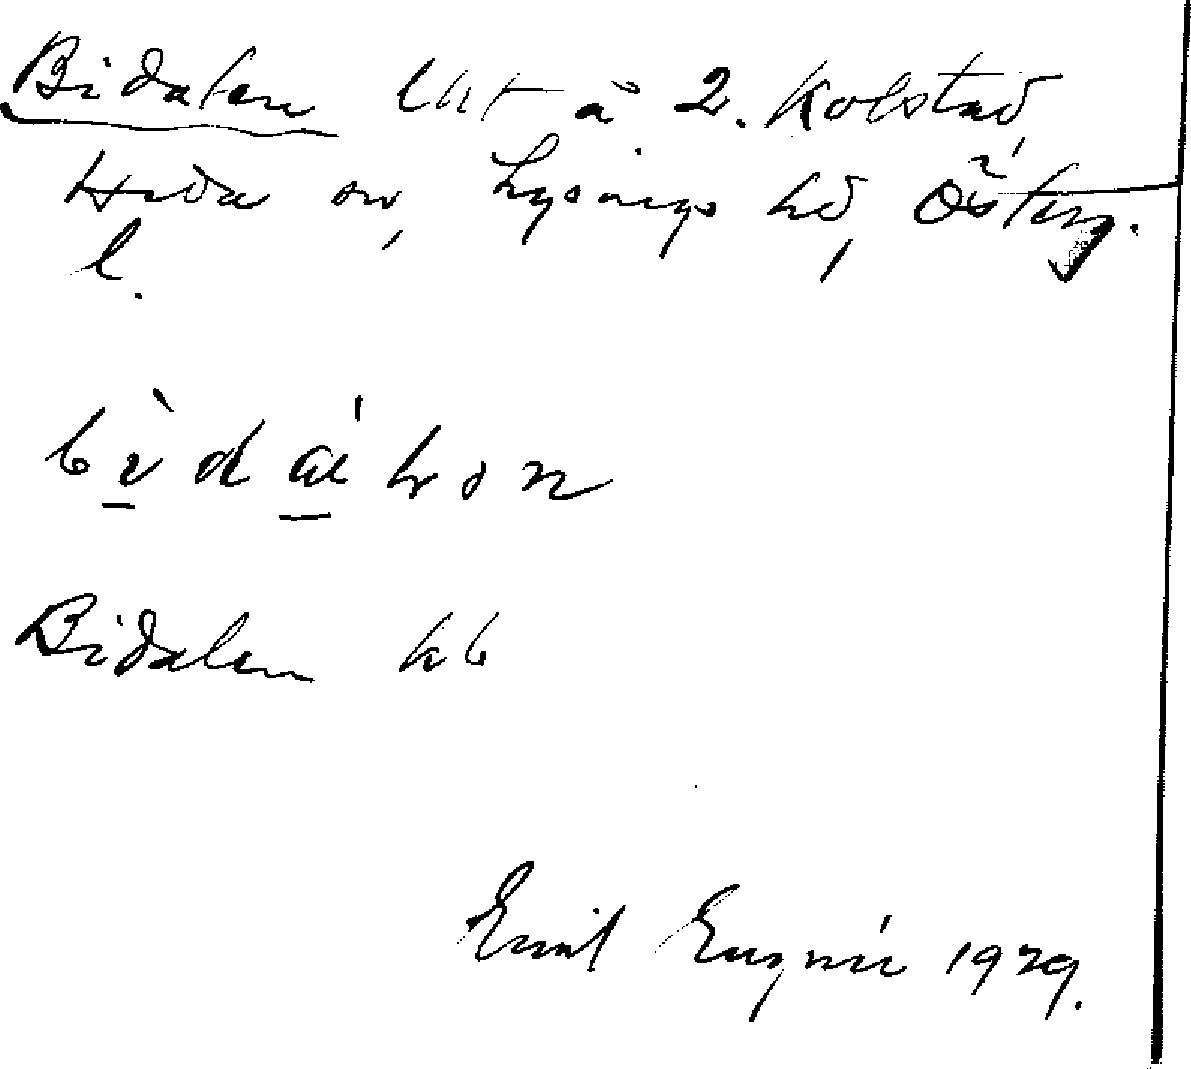 Bidalen lht å 2. Kolstad,
Heda sn, Lysings hd, Österg.
l.
Bidalen kb
Emil Engnér 1929.